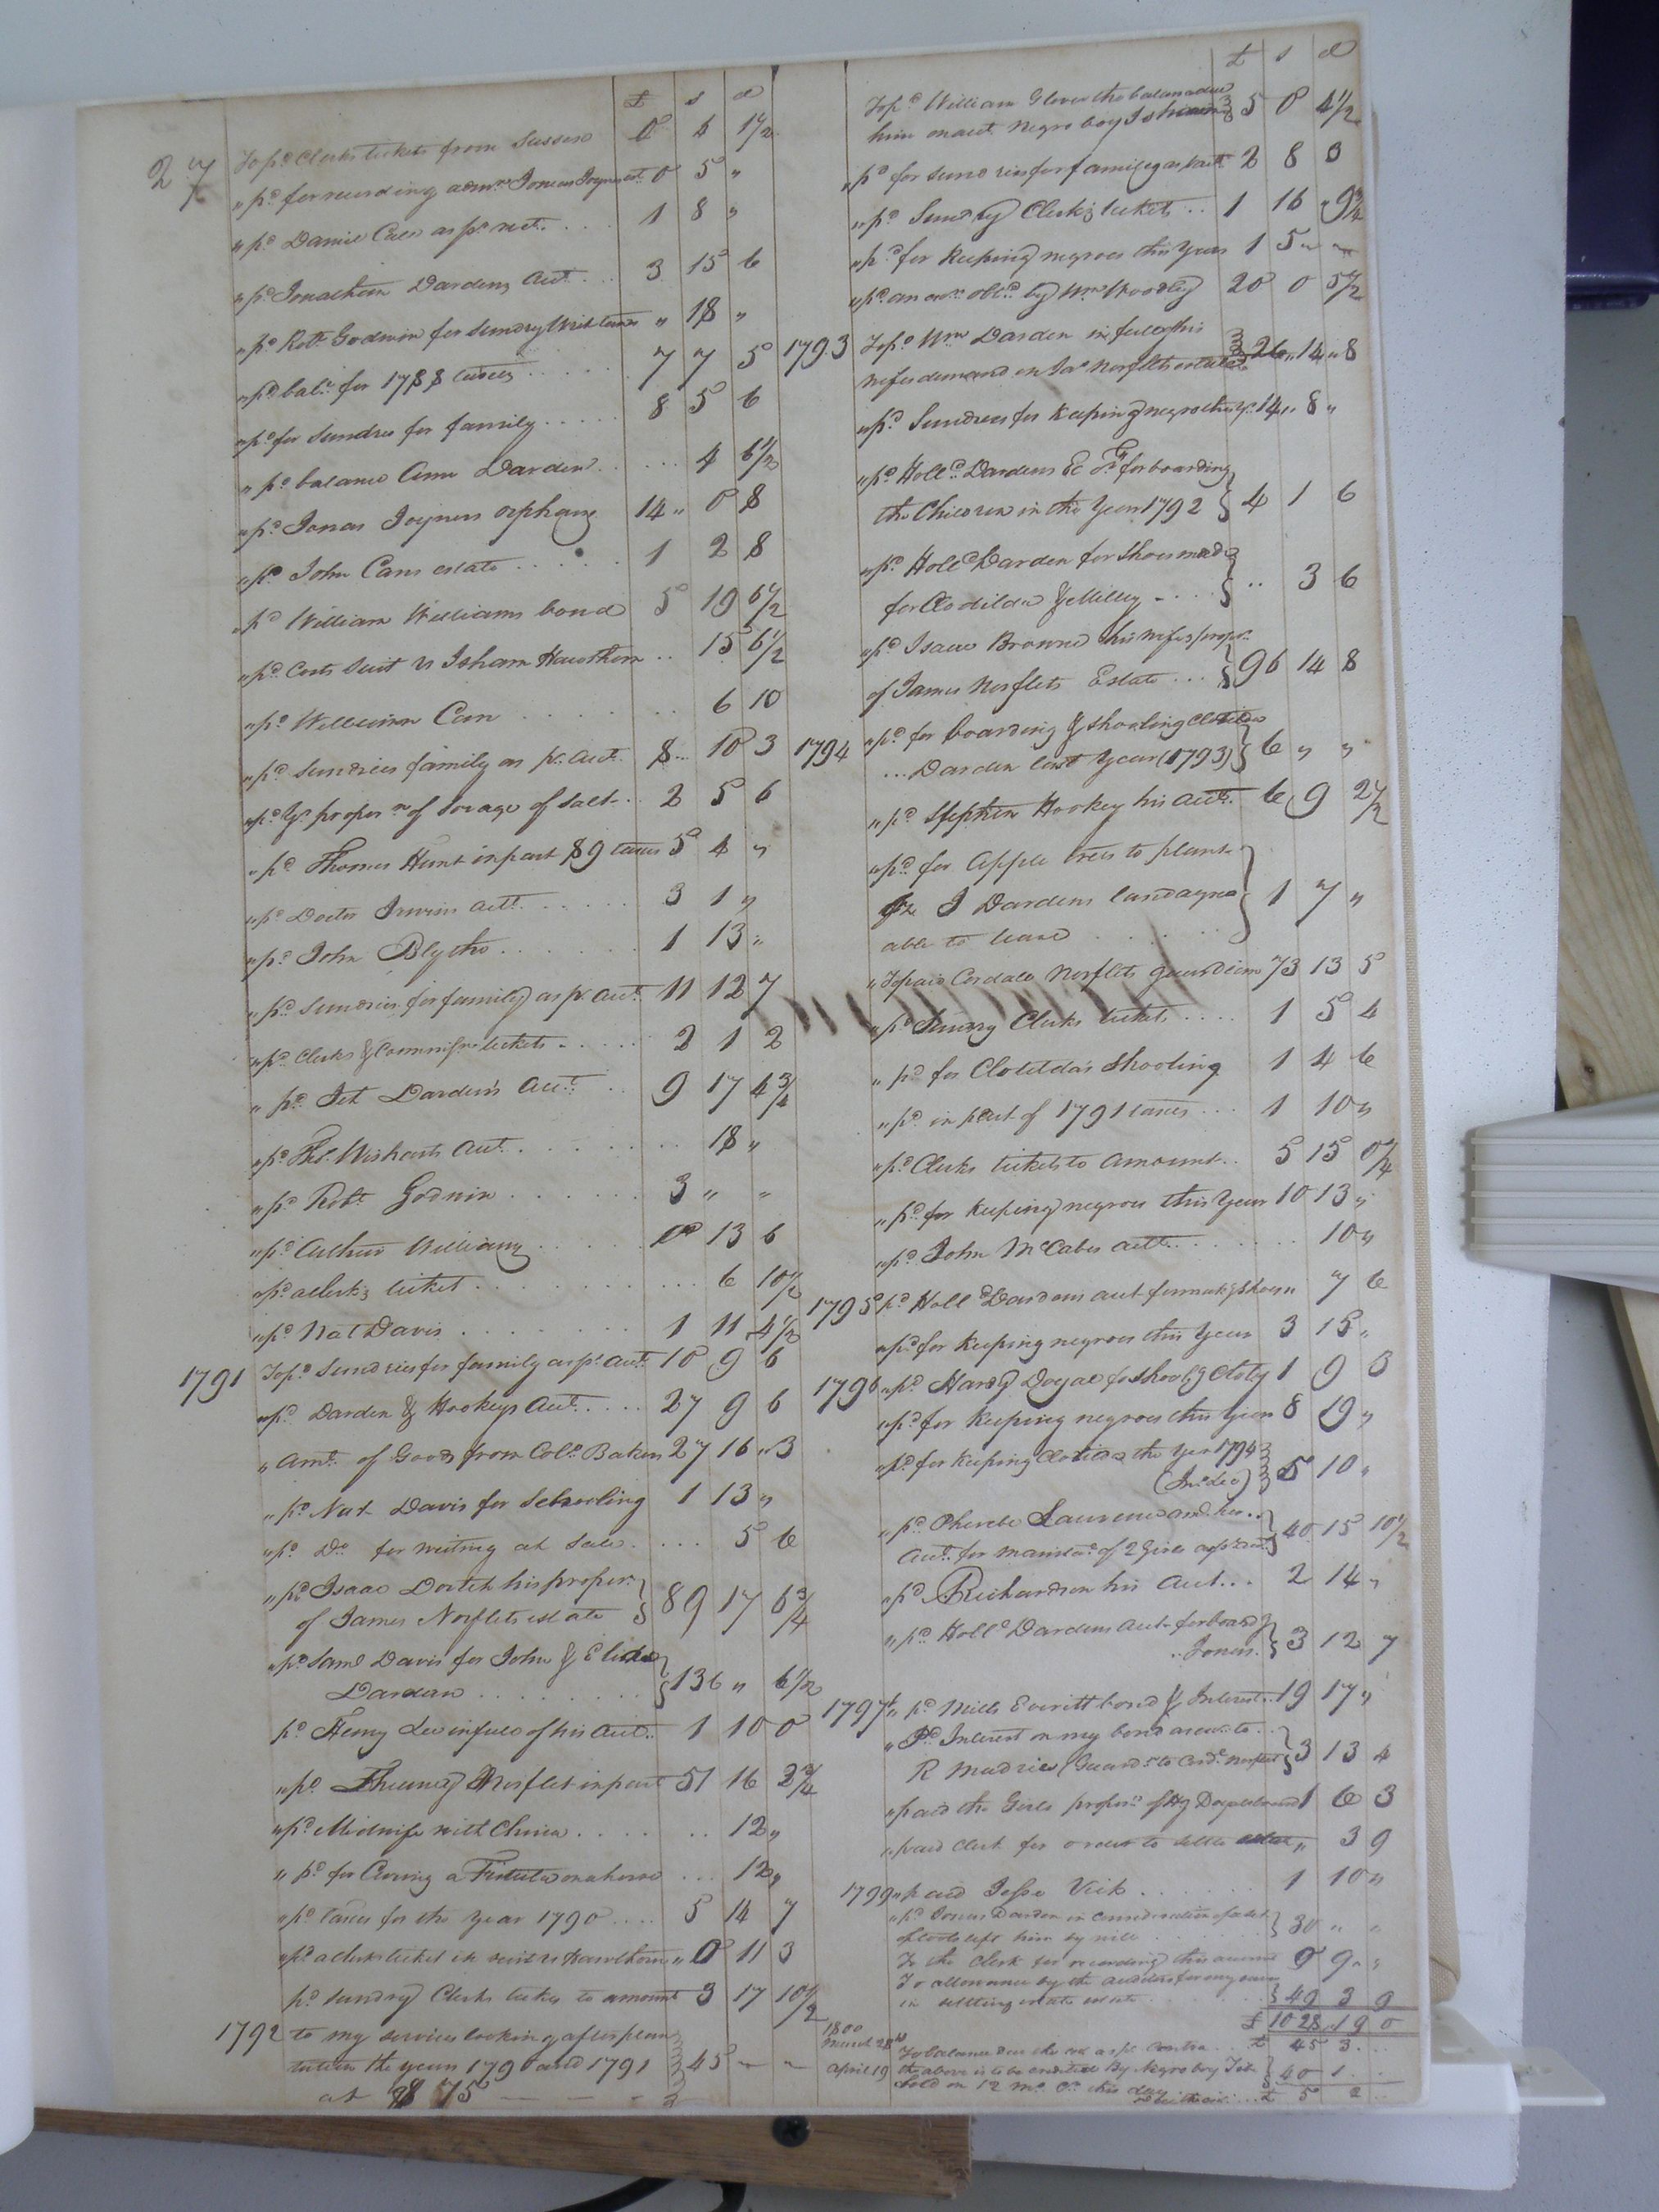 27
£ s d
To pd Clerks tickets from Sussex 0 4 1 1/2
" pd for recording admr Jonas Joyners est. 0 5 "
" pd Daniel Carr as pr rect. . . . 1 8 "
" pd Jonathan Dardens Act . . 3 15 6
" pd Robt Godwin for Sundry " 18 "
" pd balce for 1788 taxes . . . . . 7 7 5
" pd for Sundries for family . . . . . 8 5 6
" pd balance Ann Darden . . . . 4 6 1/2
" pd Jonas Joyners orphans 14 " 0 8
" pd John Carrs estate . . . . . 1 2 8
" pd William Williams bond 5 19 6 1/2
" pd Costs Suit vs Isham Hawthorn . . 15 6 1/2
" pd William Carr . . . . . . 6 10
" pd Sundries family as pr Act. 8 . . 10 3
" pd Yr propor n of forage of Salt . . 2 5 6
" pd Thomas Hunt in part 89 taxes 5 4 "
" pd Doctor Irwins actt . . . . . 3 1 "
" pd John Blythe . . . . . . 1 13 "
" pd Sundries for family as pr Act. 11 12 7
" pd Clerks & Commissrs tickets . . . . . 2 1 2
" pd Jet Darden's Actt . . 9 17 4 3/4
" pd Thos. Wisharts Act . . . . . . 18 "
" pd Robt Godwin . . . . . . 3 " "
" pd Arthur Williams . . . . . 0 13 6
" pd a clerks ticket . . . . . . . . . 6 10 1/2
" pd Nat Davis . . . . . . . 1 11 4 1/2
1791 To pd Sundries for family as pr act. 10 9 6
" pd Darden & Hookeys Act . . . . 27 9 6
" Amt of Goods from Colo Bakers 27 16 " 3
" pd Nat Davis for Schooling 1 13 "
" pd Do for writing at Sale . . . . 5 6
" pd Isaac Dortch his propor.
of James Norflets estate } 89 17 6 3/4
" pd Saml Davis for John & Elisha
Darden . . . . . . . . } 136 " 6 1/2
pd Henry Lee in full of his Act . . 1 10 0
" pd Norflet in part 51 16 2 3/4
" pd Midwife with China . . . . . . . 12 "
" pd for Curing a Fistula on a horse . . . 12 "
" pd taxes for the Year 1790 . . . . 5 14 7
" pd a clerks ticket in suit vs Hawthorn " 0 11 3
pd Sundry Clerks tickets to amount 3 17 10 1/2
1792 to my services looking after plan
tation the years 1790 and 1791
at 75 } 45 — —
£ s d
To pd William Glover the balance due
him on act Negro boy Isham } 5 0 4 1/2
" pd for Sundries for family as pr actt 2 8 3
" pd Sundry Clerks tickets . . 1 16 " 9 3/4
" pd for Keeping negroes this Year 1 5 " "
" pd an exn obtd by Wm Woodley 20 0 5 1/2
1793 To pd Wm Darden in full of his
wifes demand on Jas Norflets estate } 26 " 14 " 8
" pd Sundries for Keeping negroes this Yr. 14 " 8 "
" pd Holld Dardens Ex for boarding
the Children in the Year 1792 } 4 1 6
" pd Holld Darden for Shoes made
for Clotilda & Milley . . . . } . . 3 6
" pd Isaac Browne his wifes propor.
of James Norflets Estate . . . } 96 14 8
1794 " pd for boarding & Shooling Clotilda
. . . Darden last Year (1793) } 6 " "
" pd Stephen Hookey his Actt . 6 9 2 1/2
" pd for Apple trees to plant
J Dardens land agree
able to lease . . . . . . } 1 7 "
" To paid Cordale Norflets guardian 73 13 5
" pd Sundry Clerks tickets . . . . 1 5 4
" pd for Clotilda's Shooling 1 4 6
" pd in part of 1791 taxes . . . 1 10 "
" pd Clerks tickets to amount . . 5 15 0 1/4
" pd for Keeping negroes this Year 10 13 "
" pd John McCabes actt . . . . . . . 10 "
1795 pd Holld Dardens act for makg Shoes " 7 6
" pd for Keeping negroes this Year 3 15 "
1796 " pd Hardy Doyal for Shoolg Cloty 1 9 3
" pd for Keeping negroes this Year 8 19 "
" pd for Keeping Clotilda the Year 1794
(Jno Lee) } 5 10 "
" pd Pherebe Laurence
Act. for maintce of 2 Girls } 40 15 10 1/2
" pd Richardson his Act . . . 2 14 "
" pd Holld Dardens Act for board
. . Jonas. } 3 12 7
1797 " pd Mills Everitt bond & Interest . . 19 17 "
" Pd Interest on my bond to . .
R Madrie (Guardn to Cord. Norflet } 3 13 4
" paid the Girls proporn of Hy 1 6 3
" paid Clerk for orders to settle estate " 3 9
1799 " paid Jesse Vick . . . . . . 1 10 "
" pd Jonas Darden in consideration of
of tools left him by will . . . . . . . } 30 " "
To the Clerk for recording this account 0 9 " "
To allowance by the auditors for my
in settling estate . . . . . . . } 49 3 9
£ 1028 19 0
1800
March 28th To balance due the est as pr Contra . . £ 45 3 . . .
April 19 the above is to be credited By Negro boy Jet
Sold on 12 Mo Cr. this day } 40 1 . .
£ 5 2 . .